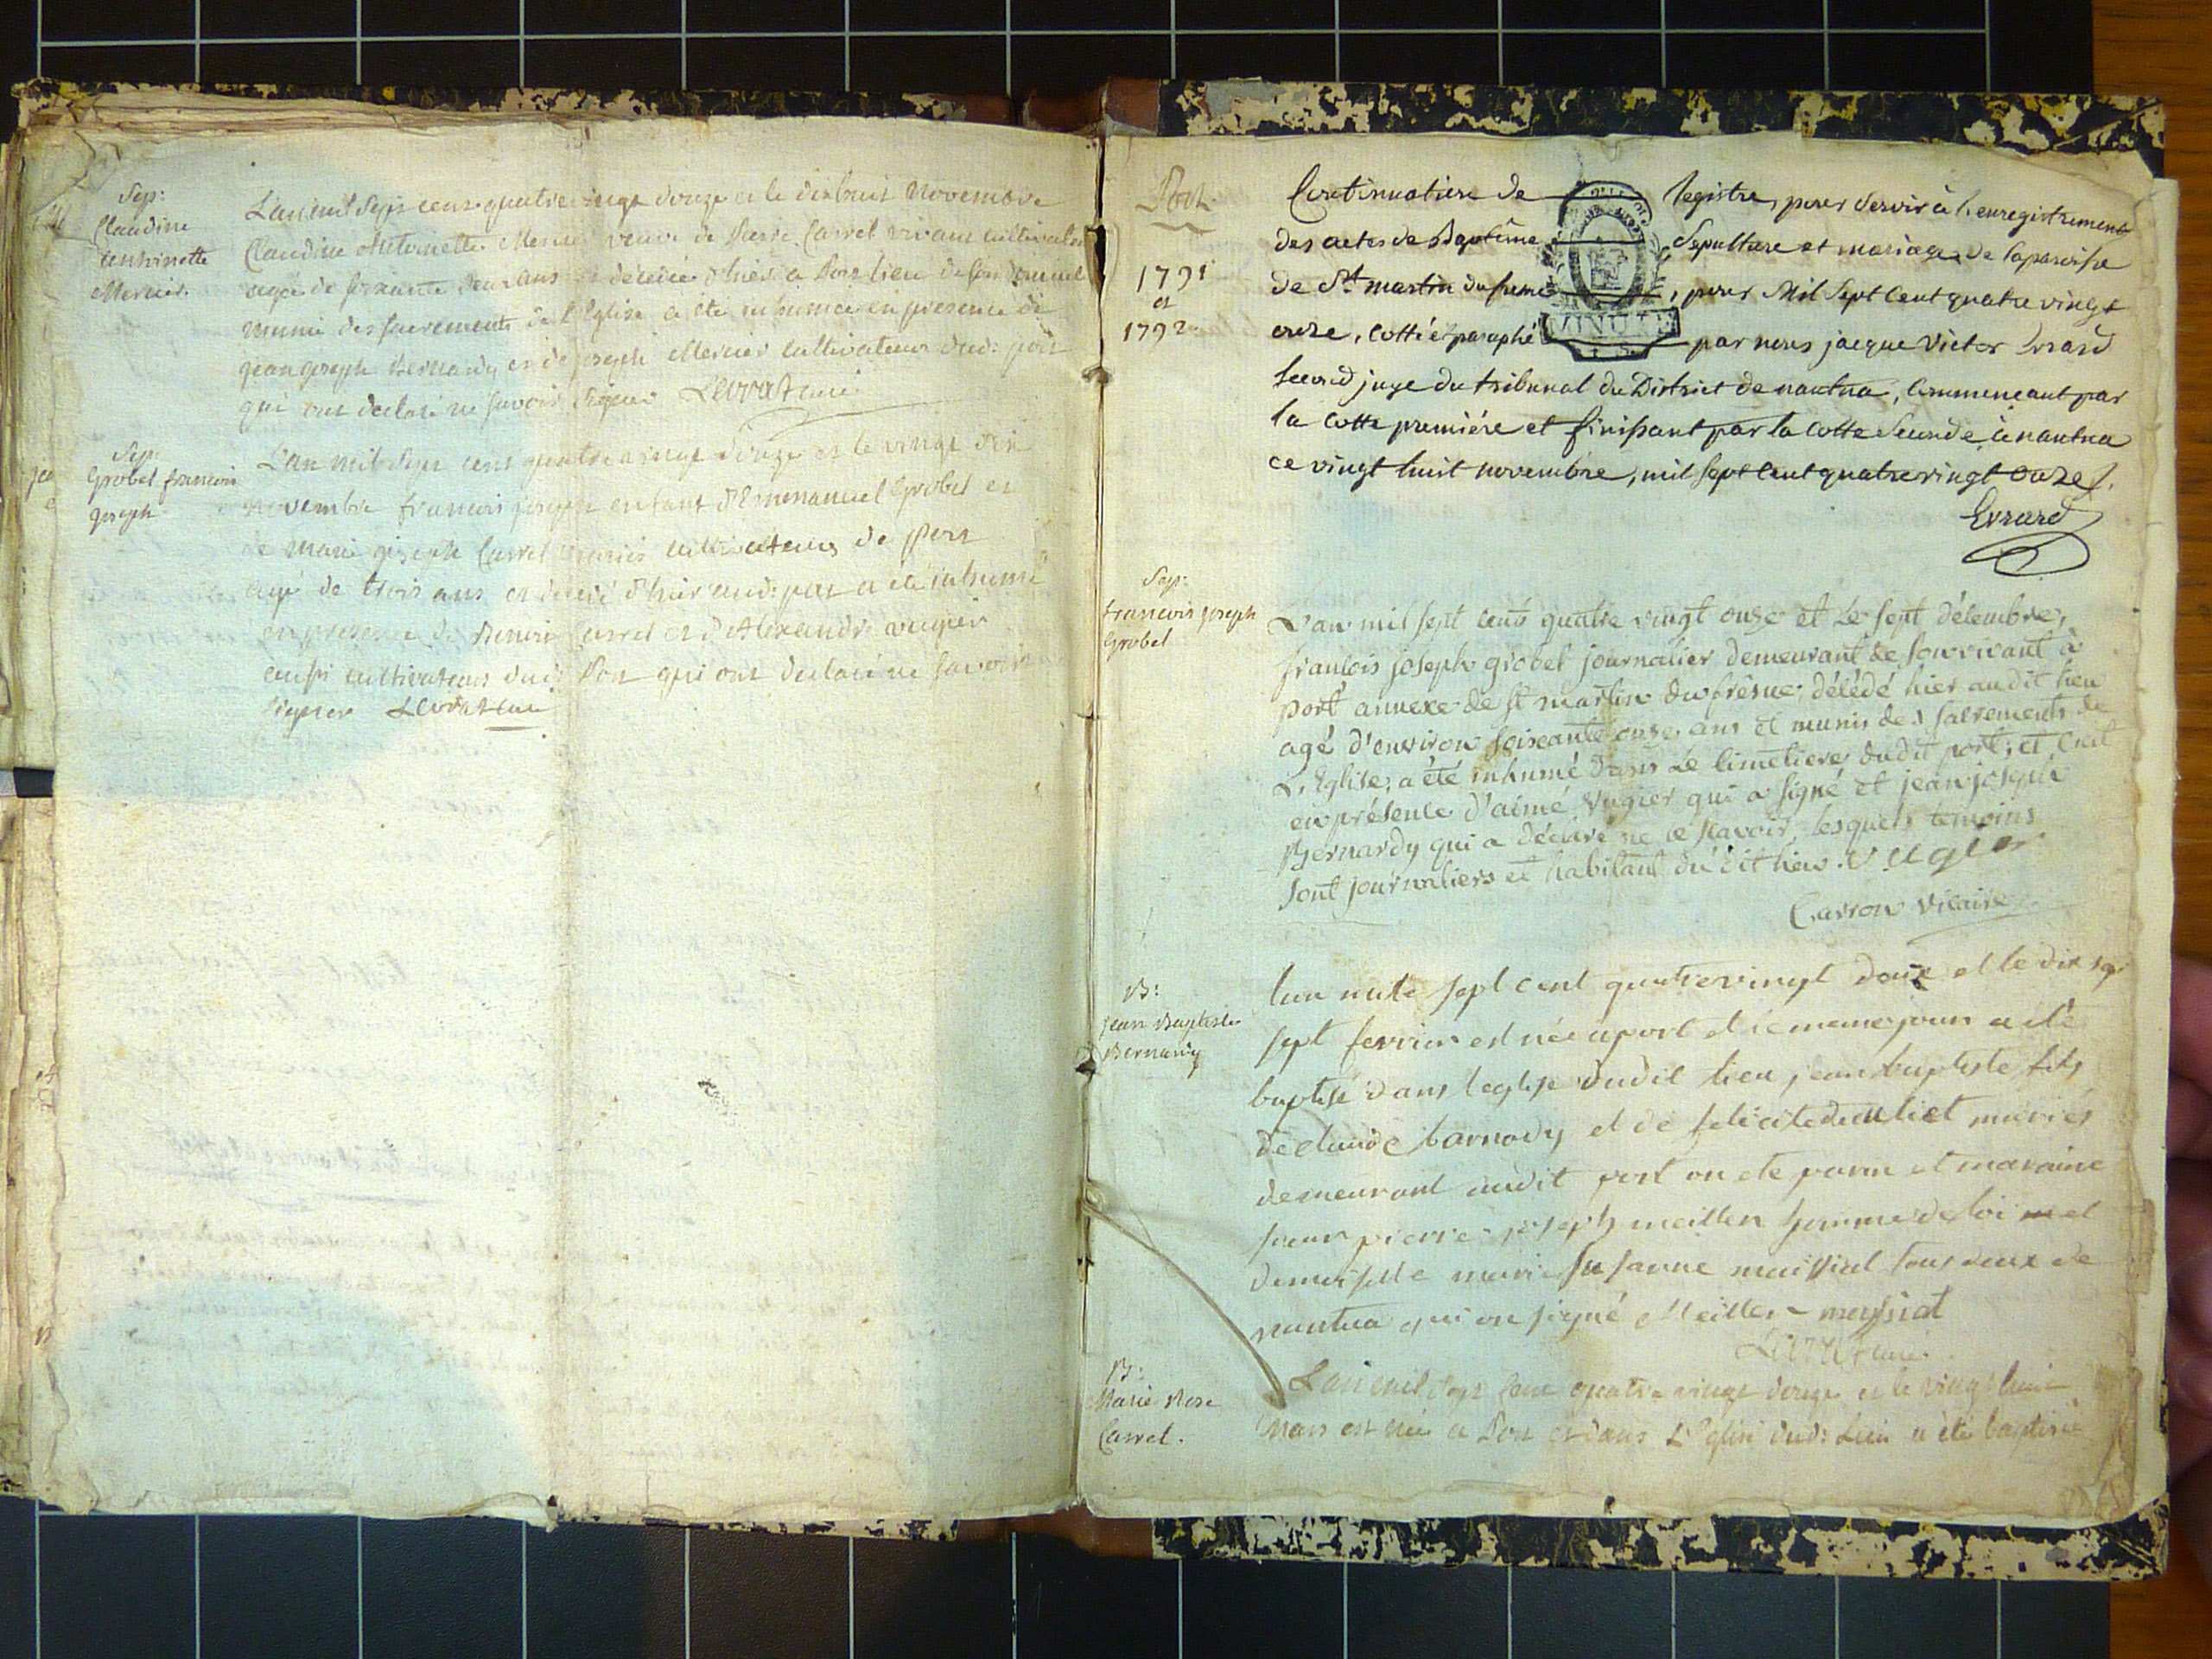 Sep:
Claudine
anthoinette
Mercier.
L'an mil Sept cent quatre vingt douze et le dixhuit Novembre
Claudine Antoinette Mercier veuve de Pierre Carrel vivant cultivateur
agée de soixante deux ans et décédée d'hier a Port lieu de son domicil
munie des sacrements de l'Eglise a ete inhumée en presence de
jean joseph Bernardy et de joseph Mercier cultivateurs dud: port
qui ont declaré ne savoir signer Levrat curé
Sep:
Grobel francois
joseph
L'an mil Sept cent quatre vingt douze et le vingt six
novembre francois joseph enfant d'Emmanuel Grobel et
de marie joseph Carrel mariés cultivateurs de Port
agé de trois ans et décédé d'hier aud: port a été inhumé
en presence de Carrel et d'Alexandre vugier
aussi cultivateurs dud: Port qui ont declaré ne savoir
signer Levrat curé
Port
1791
et
1792
Continuation de registre, pour servir à l'enregistrement
des actes de Baptême Sepulture et mariage, de la paroisse
de St. martin du frene, pour Mil Sept Cent quatre vingt
onze, cotté et paraphé par nous jacque Victor Errard
MINUTE
second juge du tribunal du District de nantua, Commencant par
la cotte première et finissant par la cotte Seconde à nantua
ce vingt huit novembre, mil Sept Cent quatre vingt onze.
Errard
Sep:
francois joseph
Grobel
L'an mil sept cent quatre vingt onze et Le sept décembre,
francois joseph grobel journalier demeurant de son vivant à
port annexe de st martin du frêsne, décédé hier audit lieu
agé d'environ soixante onze ans et munis des sacrements de
L'Eglise, a été inhumé dans Le cimetiere dudit port, et c'est
en présence d'aimé vugier qui a signé et jean joseph
Bernardy qui a déclaré ne le scavoir, lesquels temoins
sont journaliers et habitant du dit lieu. vugier
Carron vicaire
B:
jean Baptiste
Bernardy
lan mile sept cent quatrevingt douze et le dix sep
sept fevrier est née a port et le meme jour a été
baptisé dans leglise dudit lieu jean baptiste fils
de claude barnody et de felicite mariés
demeurant audit port on ete parin et maraine
sieur pierre joseph meillier homme de loi et
demoiselle marie susanne maissiat tous deux de
nantua qui on signé Meillier meyssiat
Levrat curé
B:
Marie Rose
Carrel.
L'an mil sept cent quatre vingt douze et le vingt huit
Mars est née a Port et dans L'Eglise dud: Lieu a été baptisée